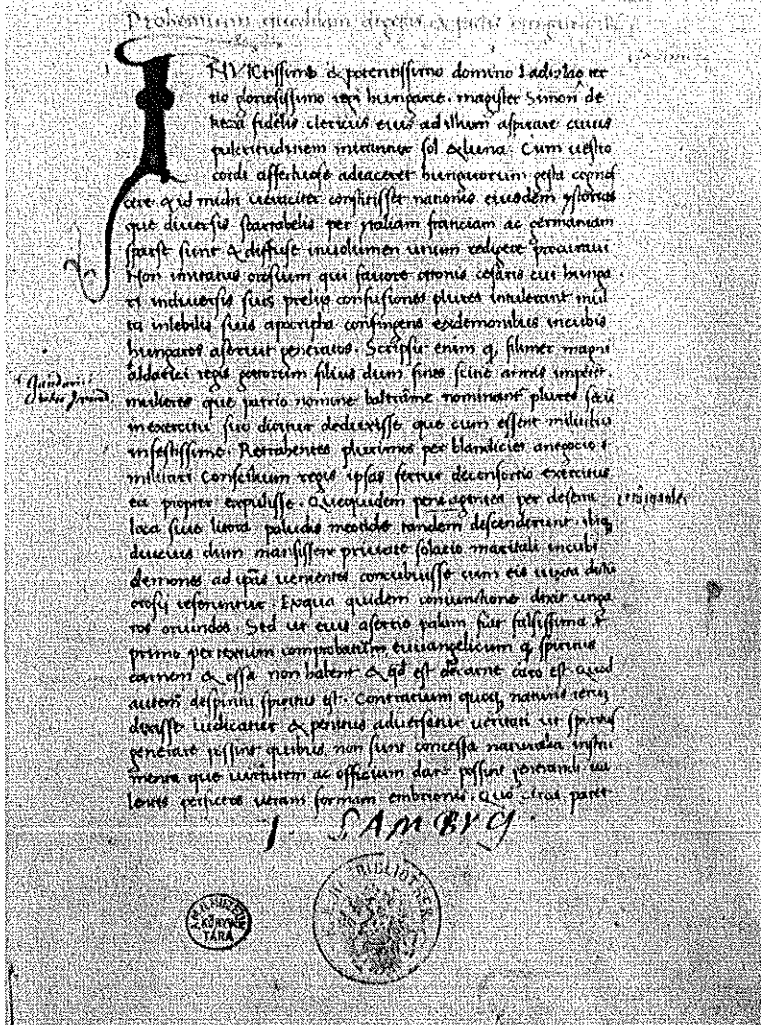 Prohemium
INVICtissimo & potentissimo domino Ladislao ter
tio gloriosissimo regi hungarie. magister Simon de
keza fidelis clericus eius ad illum aspirare cuius
pulcritudinem mirantur sol & luna. Cum uestro
cordi affectuose adiaceret hungarorum gesta cognos
cere & id michi ueraciter constitisset nationis eiusdem ystorias
que diuersis scartabelis per ytaliam franciam ac germaniam
sparse sunt & diffuse inuolumen unum redigere procuraui
Non imitatus orosium qui fauore ottonis cesaris cui hunga
ri indiuersis suis prelijs confusiones plures intulerant mul
ta inlibellis suis apocripha confingens exdemonibus incubis
hungaros asseruit generatos. Scripsit enim q, filimer magni
aldarici regis gottorum filius dum fines scitie armis impeter&
mulieres que patrio nomine baltrame nominant plures secu
inexercitu suo dicitur deduxisse que cum essent militibus
infestissime. Retrahentes plurimos per blandicies anegocio
militari Consilium regis ipsas fertur deconsortio exercitus
ea propter expulisse. Quequidem peragentes per deserta
loca sue litora paludis meotidis tandem descenderunt. ibiq,
diucius dum mansissent priuate solacio maritali incubi
demones ad ipsas uenientes concubuisse cum eis iuxta dictu
orosij referuntur. Exqua quidem coniunctione dixit unga
ros oriundos. Sed ut eius asertio palam fiat falsissima
primo per textum comprobatur euuangelicum q, spiritus
carnem & ossa non habent & qd est de carne caro est quod
autem despiritu spiritus est. Contrarium quoq, naturis rerum
dixisse iudicatur & penitus aduersatur ueritati ut spiritus
generare possint quibus non sunt concessa naturalia instru
menta que uirtutem ac officium dare possint generandi ua
lentes perficere ueram formam embrionis. Quo circa patet
I. SAMBVCI
BIBLIOTHEK
MUZEUM
KÖNYV
TÁRA